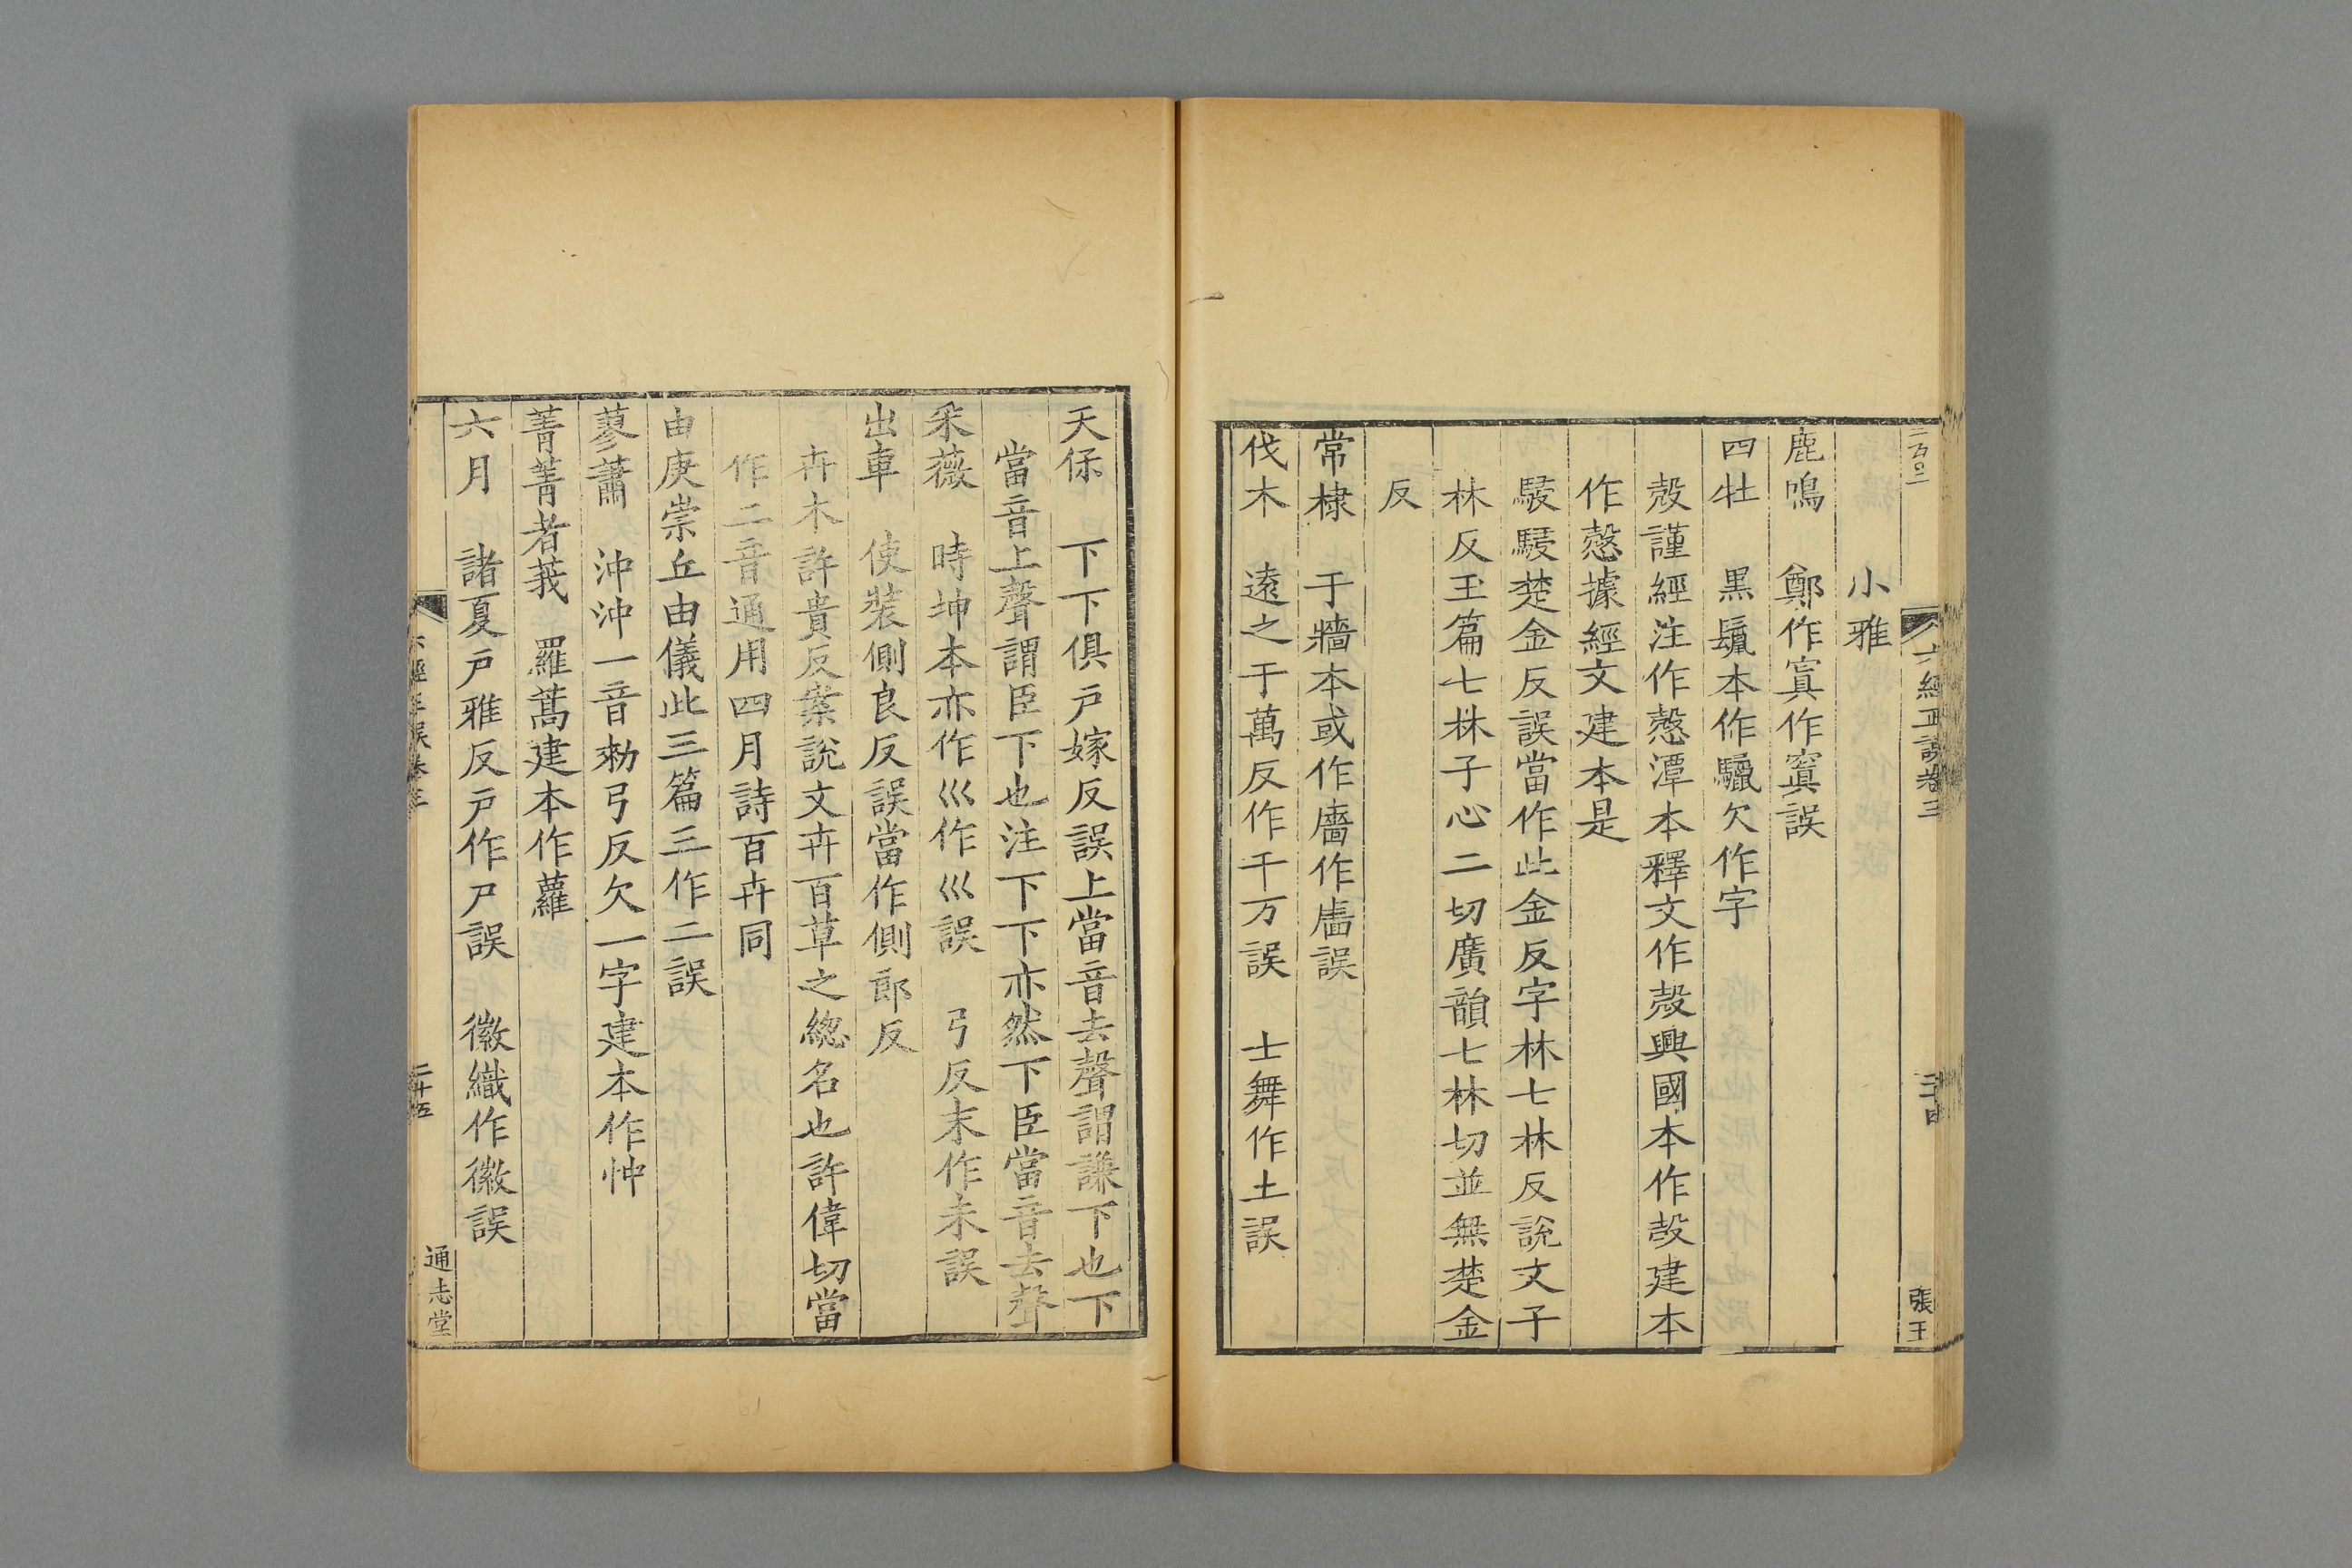 六經正誤卷三
張王
小雅
鹿鳴 鄭作寘作窴誤
四牡 黒鬛本作驖欠作字
殼謹經注作慤潭本釋文作殻興國本作㱿建本
作慤據經文建本是
駸駸楚金反誤當作此金反字林七林反說文子
林反玉篇七林子心二切廣韻七林切並無楚金
反
常棣 于牆本或作廧作廧誤
伐木 遠之于萬反作千万誤 士舞作土誤
天保 下下俱戸嫁反誤上當音去聲謂謙下也下
當音上聲謂臣下也注下下亦然下臣當音去聲
采薇 時坤本亦作巛作巛誤 弓反末作未誤
出車 使裝側良反誤當作側郎反
卉木許貴反案說文卉百草之總名也許偉切當
作二音通用四月詩百卉同
由庚崇丘由儀此三篇三作二誤
蓼蕭 沖沖一音勑弓反欠一字建本作忡
菁菁者莪 羅蒿建本作蘿
六月 諸夏戸雅反戸作尸誤 徽織作徽誤
六經正誤卷三
二十五
通志堂